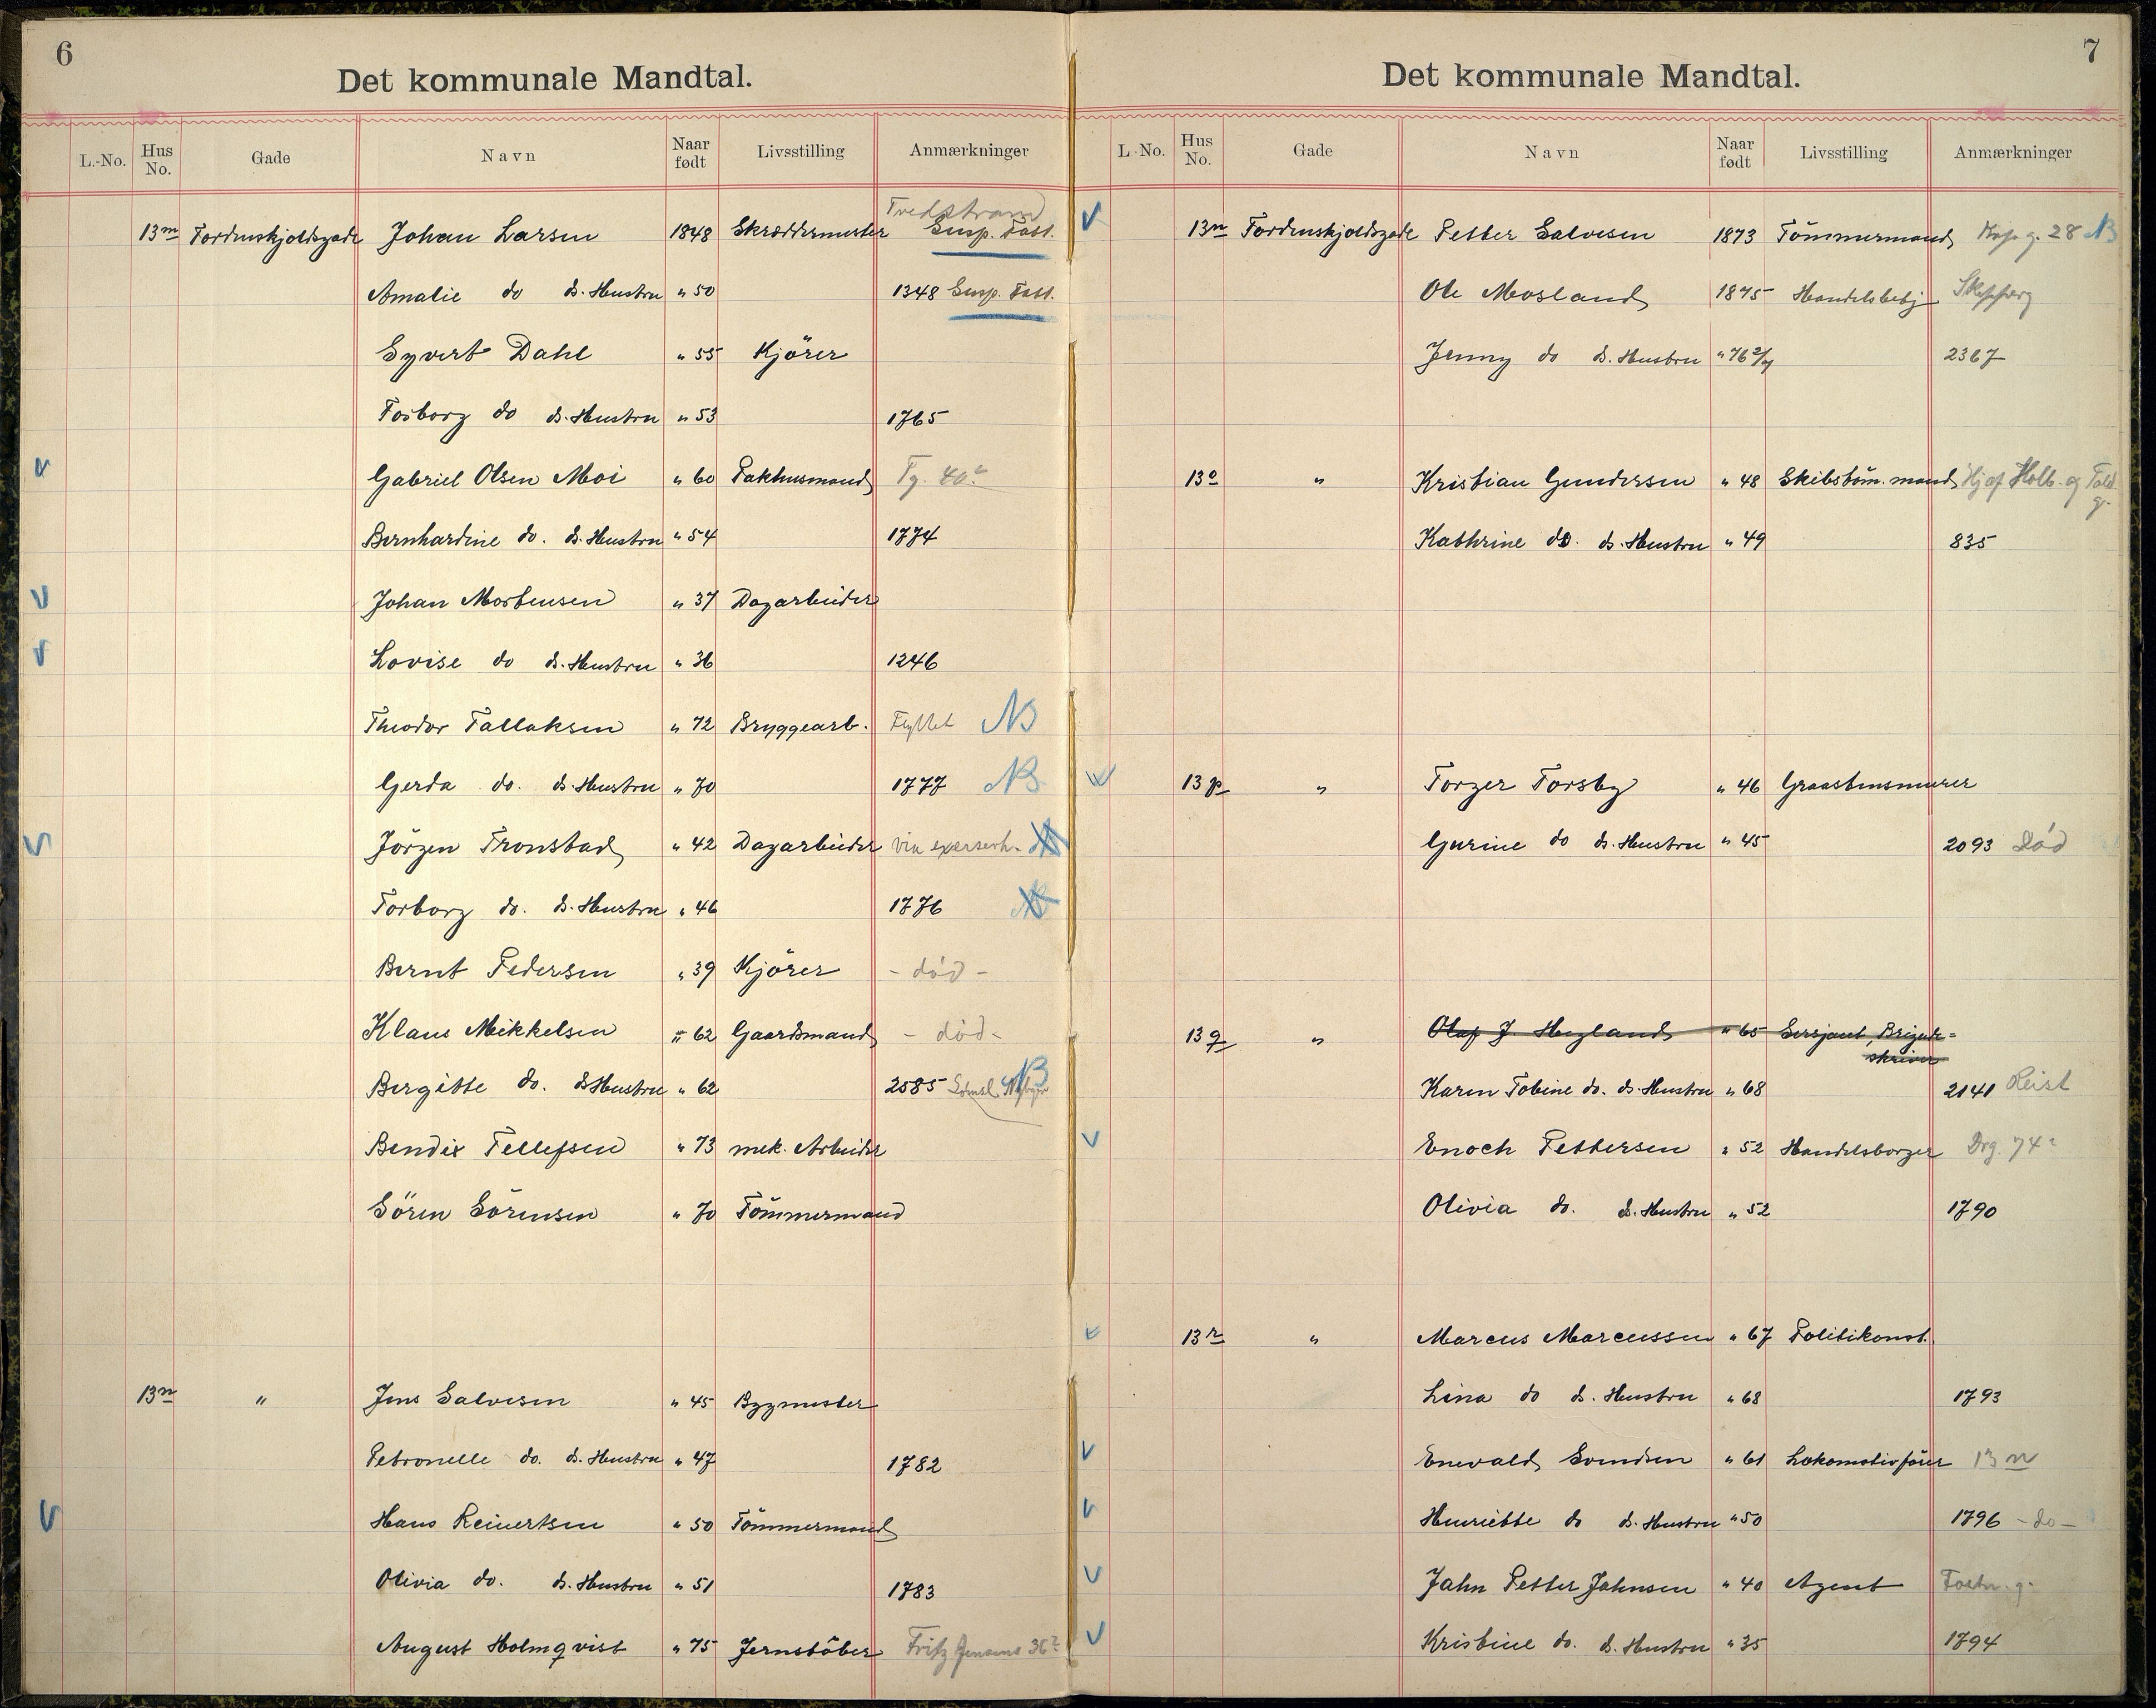 6
Det kommunale Mandtal.
L.-No. Hus No. Gade Navn Naar født Livsstilling Anmærkninger
Tvedstrand
13m Tordenskjoldsgade Johan Larsen 1848 Skræddermester Susp. Fatt.
Amalie do d. Hustru " 50 1348 Susp. Fatt.
Syvert Dahl " 55 Kjörer
Torborg do d. Hustru " 53 1765
Gabriel Olsen Moi " 60 Pakhusmand Tg. 40
Bernhardine do. d. Hustru " 54 1774
Johan Mortensen " 37 Dagarbeider
Lovise do d. Hustru " 36 1246
Theodor Tallaksen " 72 Bryggearb. Flyttet NB
Gerda do. d. Hustru " 70 1777 NB
Jörgen Tronstad " 42 Dagarbeider NB
Torborg do. d. Hustru " 46 1776 NB
Bernt Pedersen " 39 Kjörer - död -
Klaus Mikkelsen " 62 Gaardsmand - död -
Birgitte do. d. Hustru " 62 2585 NB
Bendix Tellefsen " 73 mek. Arbeider
Sören Sörensen " 70 Tömmermand
13n " Jens Salvesen " 45 Bygmester
Petronelle do. d. Hustru " 47 1782
Hans Reinertsen " 50 Tömmermand
Olivia do. d. Hustru " 51 1783
August Holmqvist " 75 Jernstöber Fritz Jensens 36
7
Det kommunale Mandtal.
L.-No. Hus No. Gade Navn Naar født Livsstilling Anmærkninger
13n Tordenskjoldsgade Petter Salvesen 1873 Tömmermand g. 28 NB
Ole Mosland 1875 Handelsbetj
Jenny do d. Hustru " 76 2/4 2367
13o " Kristian Gundersen " 48 Skibstöm.mand Hj af Holb. og Told g.
Kathrine do. d. Hustru " 49 835
13p " Torger Torsby " 46 Graastensmurer
Gurine do d. Hustru " 45 2093 Död
13q " Olaf J. Hegland " 65 Sersjant, Brigade=
skriver
Karen Tobine do. d. Hustru " 68 2141 Reist
Enoch Pettersen " 52 Handelsborger Drg. 74
Olivia do. d. Hustru " 52 1790
13r " Marcus Marcussen " 67 Politikonst.
Lina do d. Hustru " 68 1793
Enevald Svendsen " 61 Lokomotivförer 13 n
Henriette do d. Hustru " 50 1796 - do -
Jahn Petter Jahnsen " 40 Agent
Kristine do. d. Hustru " 35 1794